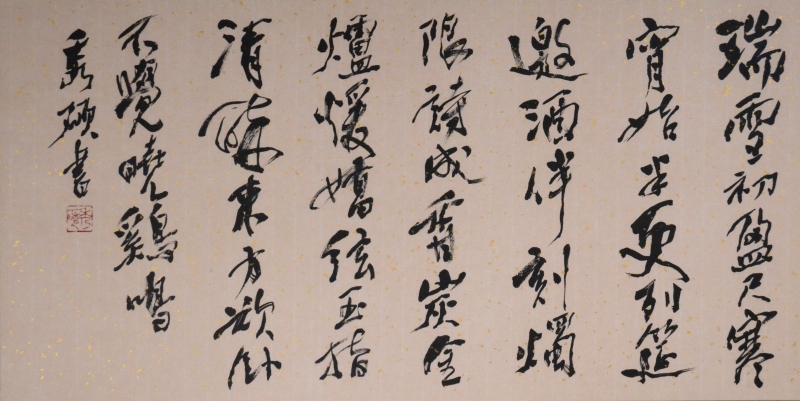 瑞雪初盈尺寒
宵始半更列筵
邀酒伴刻燭
限詩成香炭金
爐煖嬌弦玉指
清醉来方欲卧
不覺曉鷄鳴
碩書